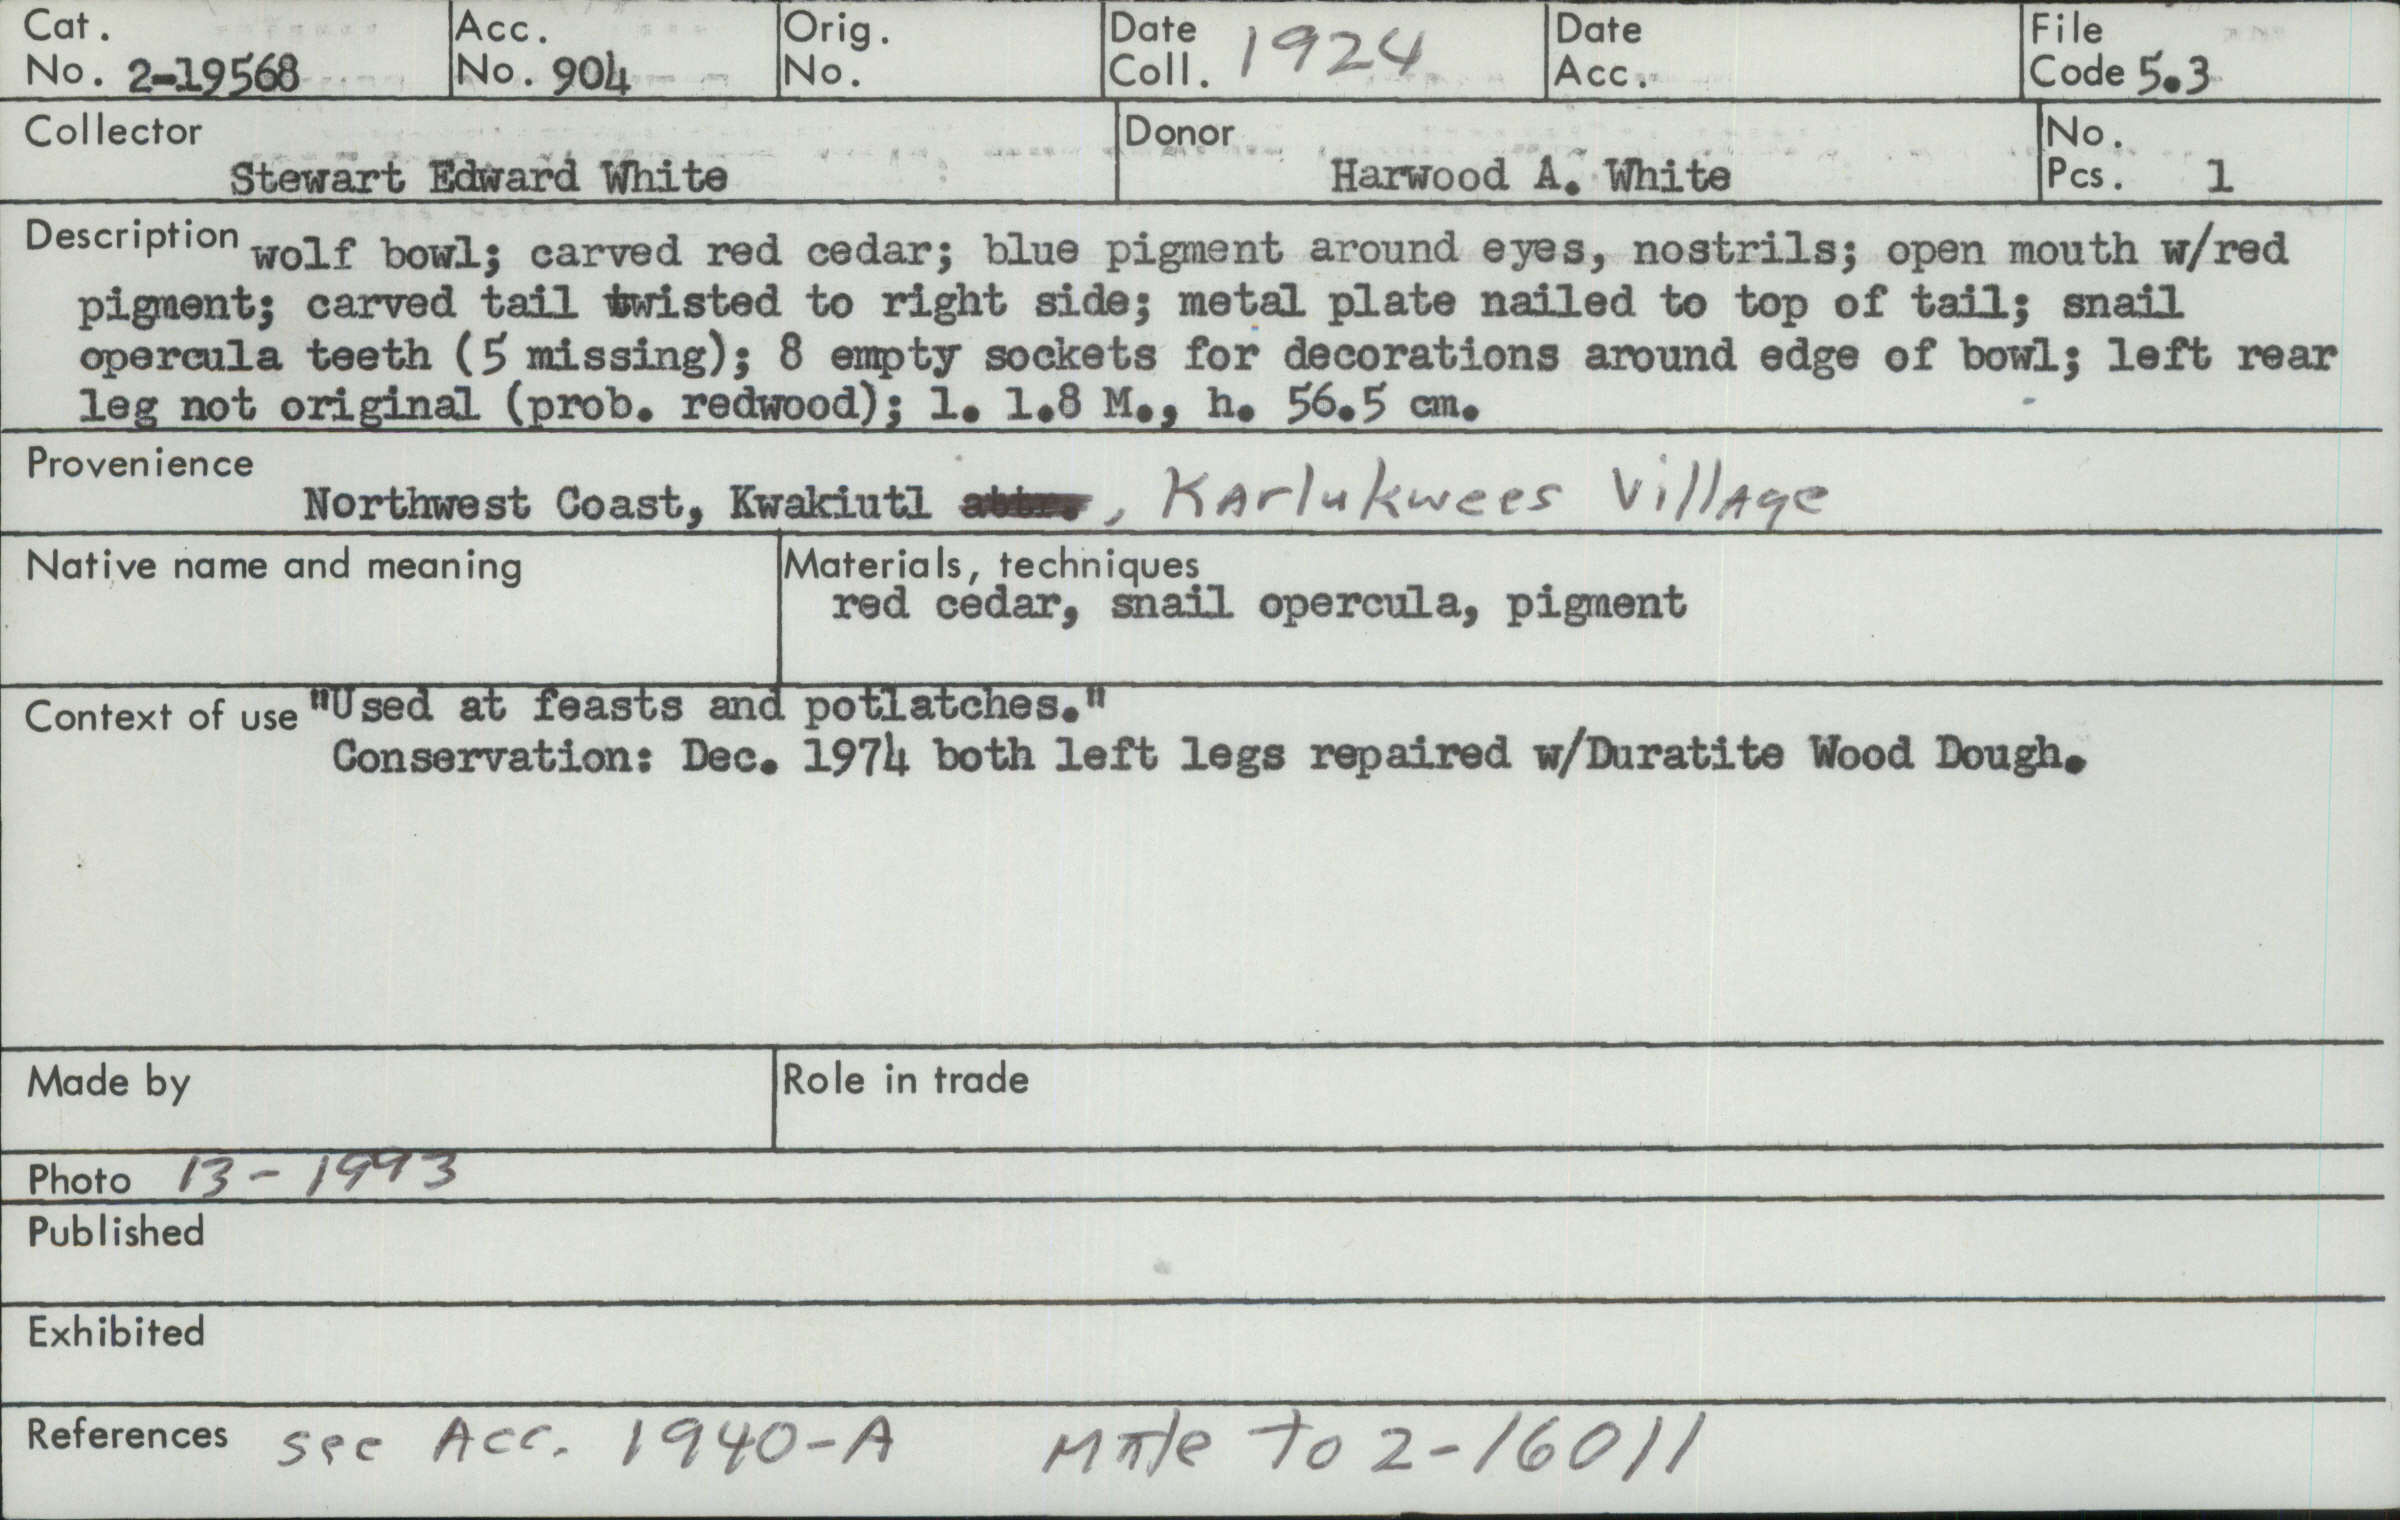 Cat. No. 2-19568 Acc. No. 904 Orig. No. Date Coll. 1924 Date Acc. File Code 5.3
Collector Stewart Edward White Donor Harwood A. White No. Pcs. 1
Description wolf bowl; carved red cedar; blue pigment around eyes, nostrils; open mouth w/red
pigment; carved tail twisted to right side; metal plate nailed to top of tail; snail
opercula teeth (5 missing); 8 empty sockets for decorations around edge of bowl; left rear
leg not original (prob. redwood); l. 1.8 M., h. 56.5 cm.
Provenience
Northwest Coast, Kwakiutl attr., Karlukwees Village
Native name and meaning Materials, techniques
red cedar, snail opercula, pigment
Context of use "Used at feasts and potlatches."
Conservation: Dec. 1974 both left legs repaired w/Duratite Wood Dough.
Made by Role in trade
Photo 13-1993
Published
Exhibited
References see Acc. 1940-A Mate to 2-16011